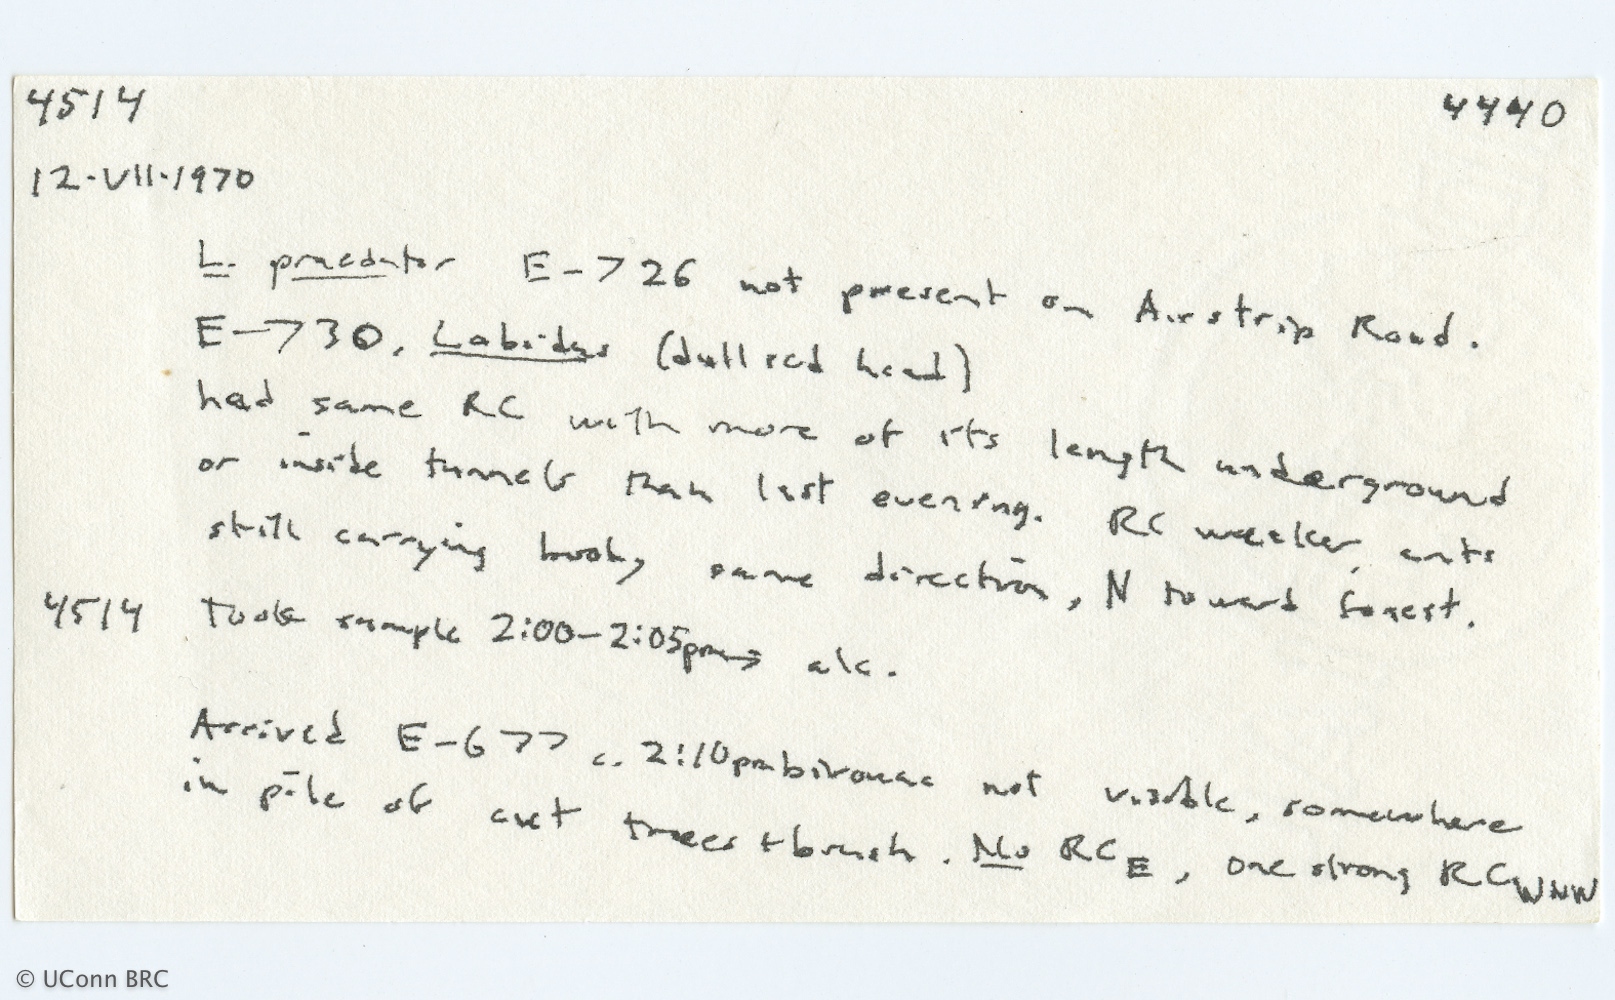 4514 4440
12·VII·1970
L. praedator E-726 not present on Airstrip Road.
E-730, Labidus (dull red head)
had same RC with more of its length underground
or inside tunnels than last evening. RC weaker, ants
still carrying booty same direction, N toward forest.
4514 Took sample 2:00-2:05pm→ alc.
Arrived E-677 c. 2:10pm bivouac not visible, somewhere
in pile of cut trees + brush. No RC E, one strong RC WNW
© UConn BRC